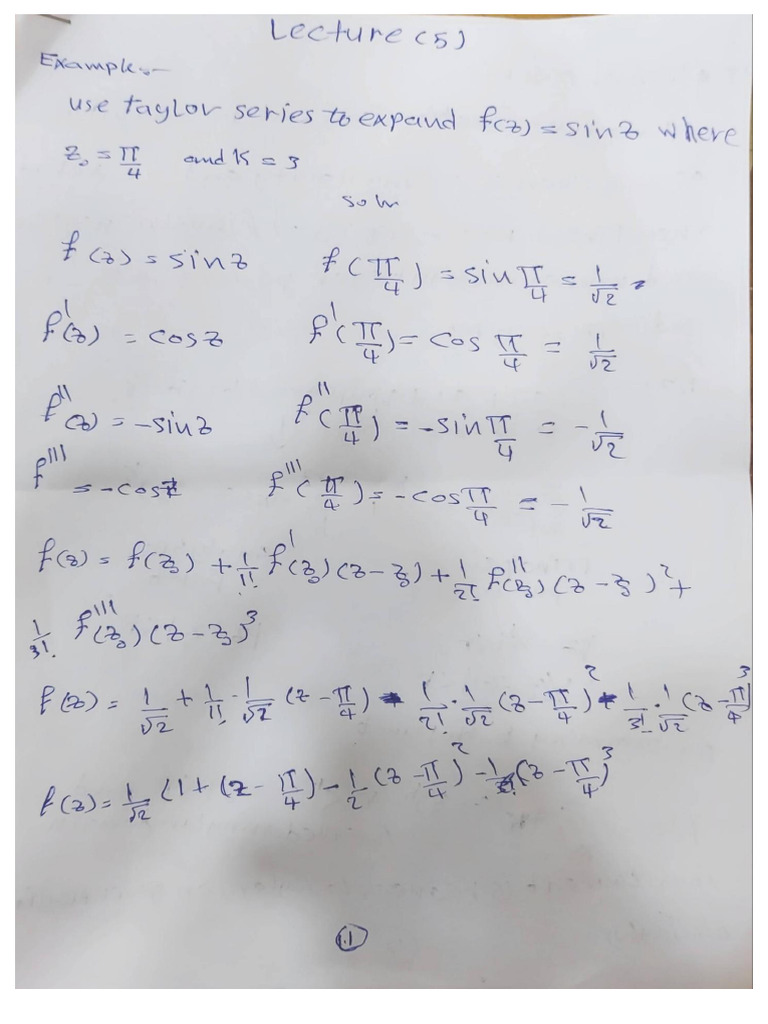 Lecture (5)
Example:-
use taylor series to expand f(z) = sin z where
z₀ = π/4 and K = 3
soln
f(z) = sin z f(π/4) = sin π/4 = 1/√2
f'(z) = cos z f'(π/4) = cos π/4 = 1/√2
f''(z) = -sin z f''(π/4) = -sin π/4 = -1/√2
f''' = -cos z f'''(π/4) = -cos π/4 = -1/√2
f(z) = f(z₀) + 1/1! f'(z₀)(z - z₀) + 1/2! f''(z₀)(z - z₀)² +
1/3! f'''(z₀)(z - z₀)³
f(z) = 1/√2 + 1/1! · 1/√2 (z - π/4) - 1/2! · 1/√2 (z - π/4)² - 1/3! · 1/√2 (z - π/4)³
f(z) = 1/√2 (1 + (z - π/4) - 1/2 (z - π/4)² - (z - π/4)³